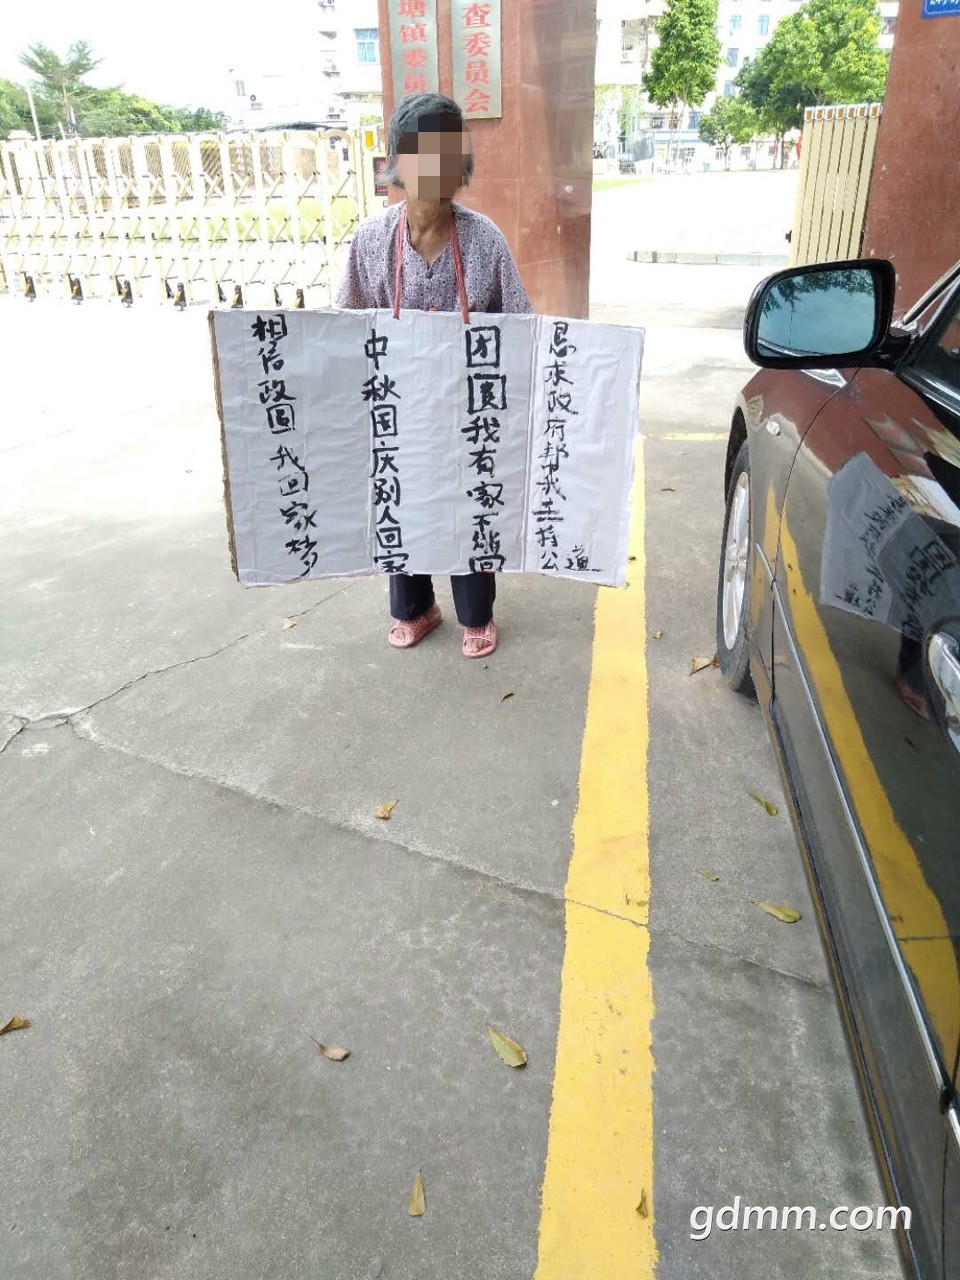 塘镇委员
查委员会
相信政圆我回家梦
中秋国庆别人回家
团圆我有家不能回
恳求政府帮我主持公道
gdmm.com